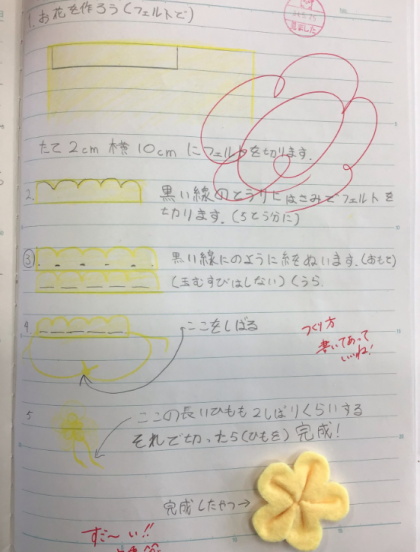 1.お花を作ろう(フェルトで)
たて2cm 横10cmにフェルトを切ります。
2.
黒い線のとうりにはさみでフェルトを
切ります。(5とう分に)
③
黒い線にのように糸をぬいます。(おもて)
(玉むすびはしない)(うら
4
ここをしばる
つくり方
書いてあって
いいね!
5
ここの長いひもを2しばりくらいする
それで切ったら(ひもを)完成!
完成したやつ→
すご〜い!!